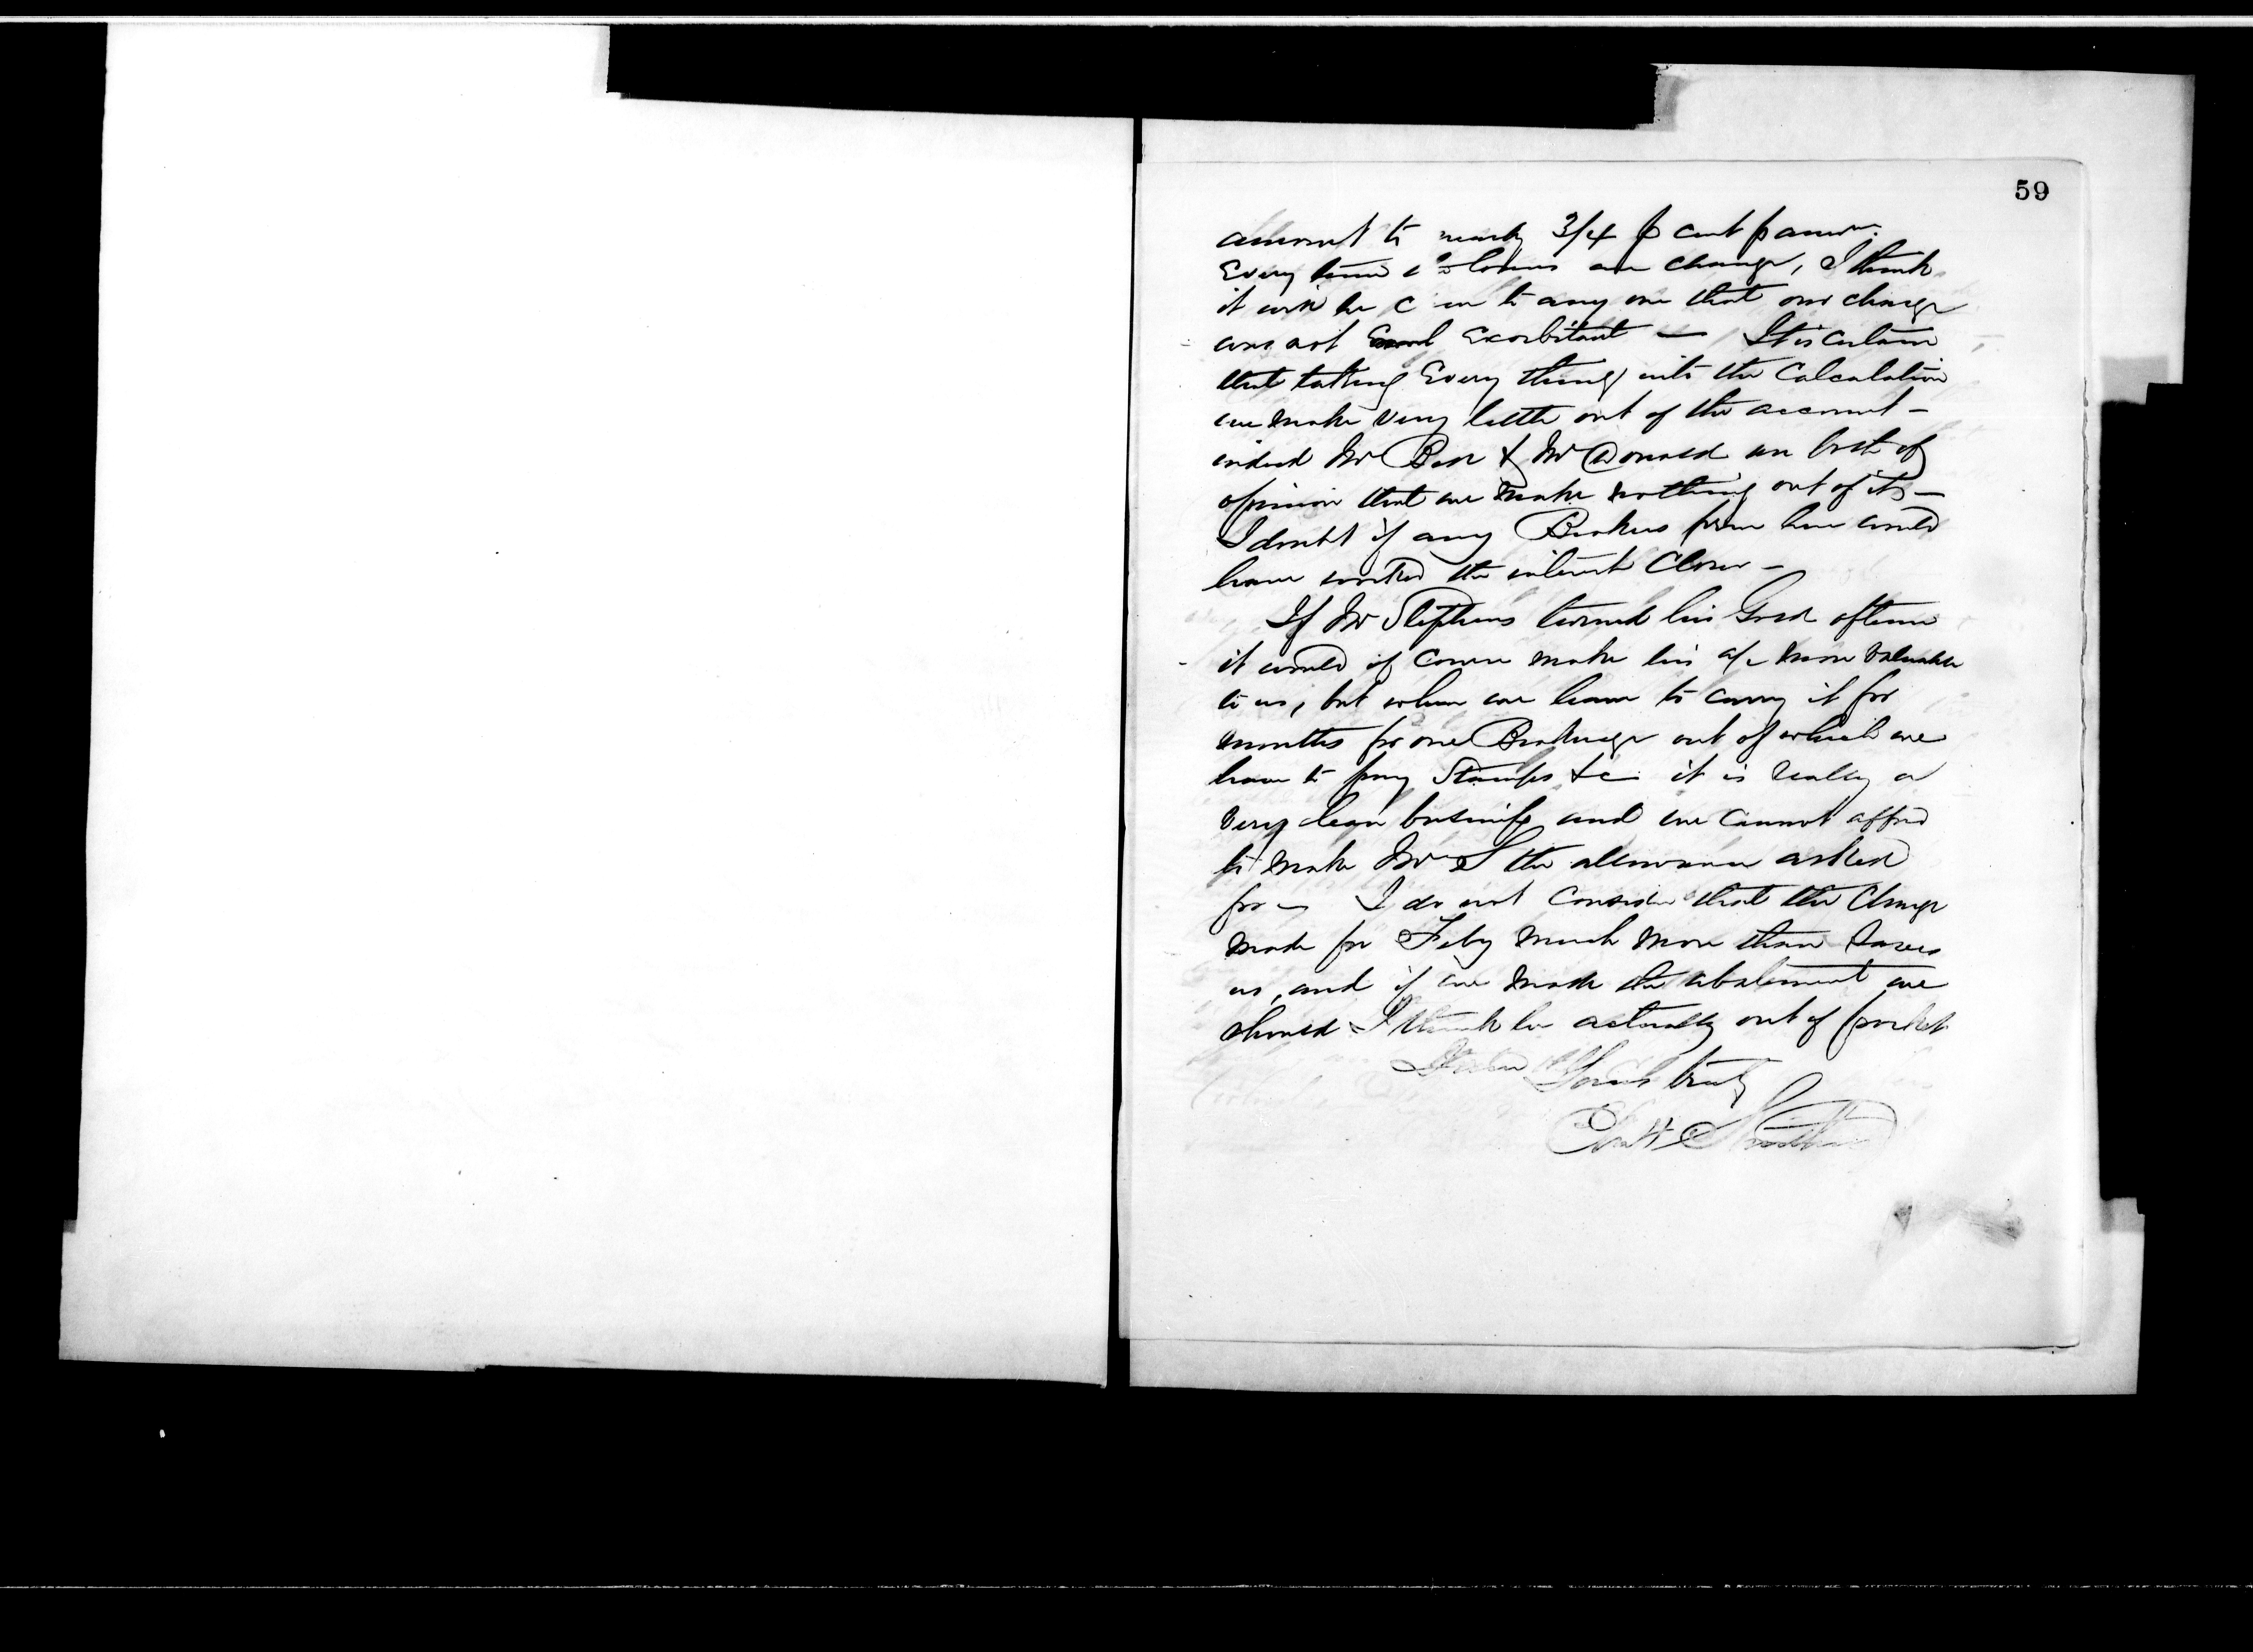 59
amount to nearly 3/4 p cent p annum.
Every time loans are change, I think
it will be to any one that our charge
was not Exorbitant — It is certain
that taking Every thing into the Calculation
we make very little out of the account —
indeed Mr & Mr Donald are both of
opinion that we make nothing out of it —
I doubt if any Brokers firm here would
have worked the interest Closer —
If Mr Stephens turned his Gold oftener
it would of course make his a/c more valuable
to us, but when we have to carry it for
months for one Brokerage out of which we
have to pay Stamps &c it is really a
very lean business and we cannot afford
to make Mr S the allowance asked
for — I do not consider that the Charge
made for Feby much more than saves
us, and if we made the abatement we
should I think be actually out of pocket
Yours truly